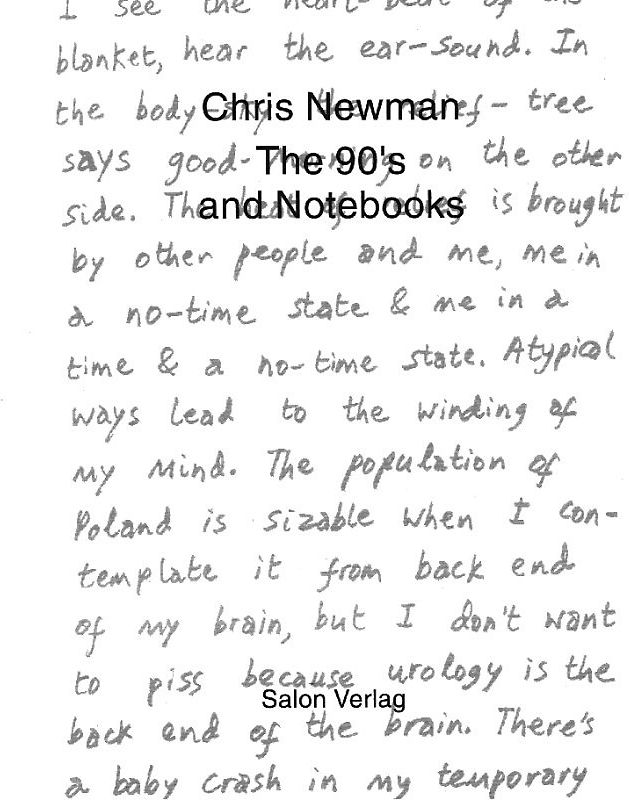 I see the heart-beat of the
blanket, hear the ear-sound. In
Chris Newman
the body-sky the relief-tree
The 90's
says good-morning on the other
and Notebooks
side. The heat of relief is brought
by other people and me, me in
a no-time state & me in a
time & a no-time state. Atypical
ways lead to the winding of
my mind. The population of
Poland is sizable when I con-
template it from back end
of my brain, but I don't want
to piss because urology is the
Salon Verlag
back end of the brain. There's
a baby crash in my temporary